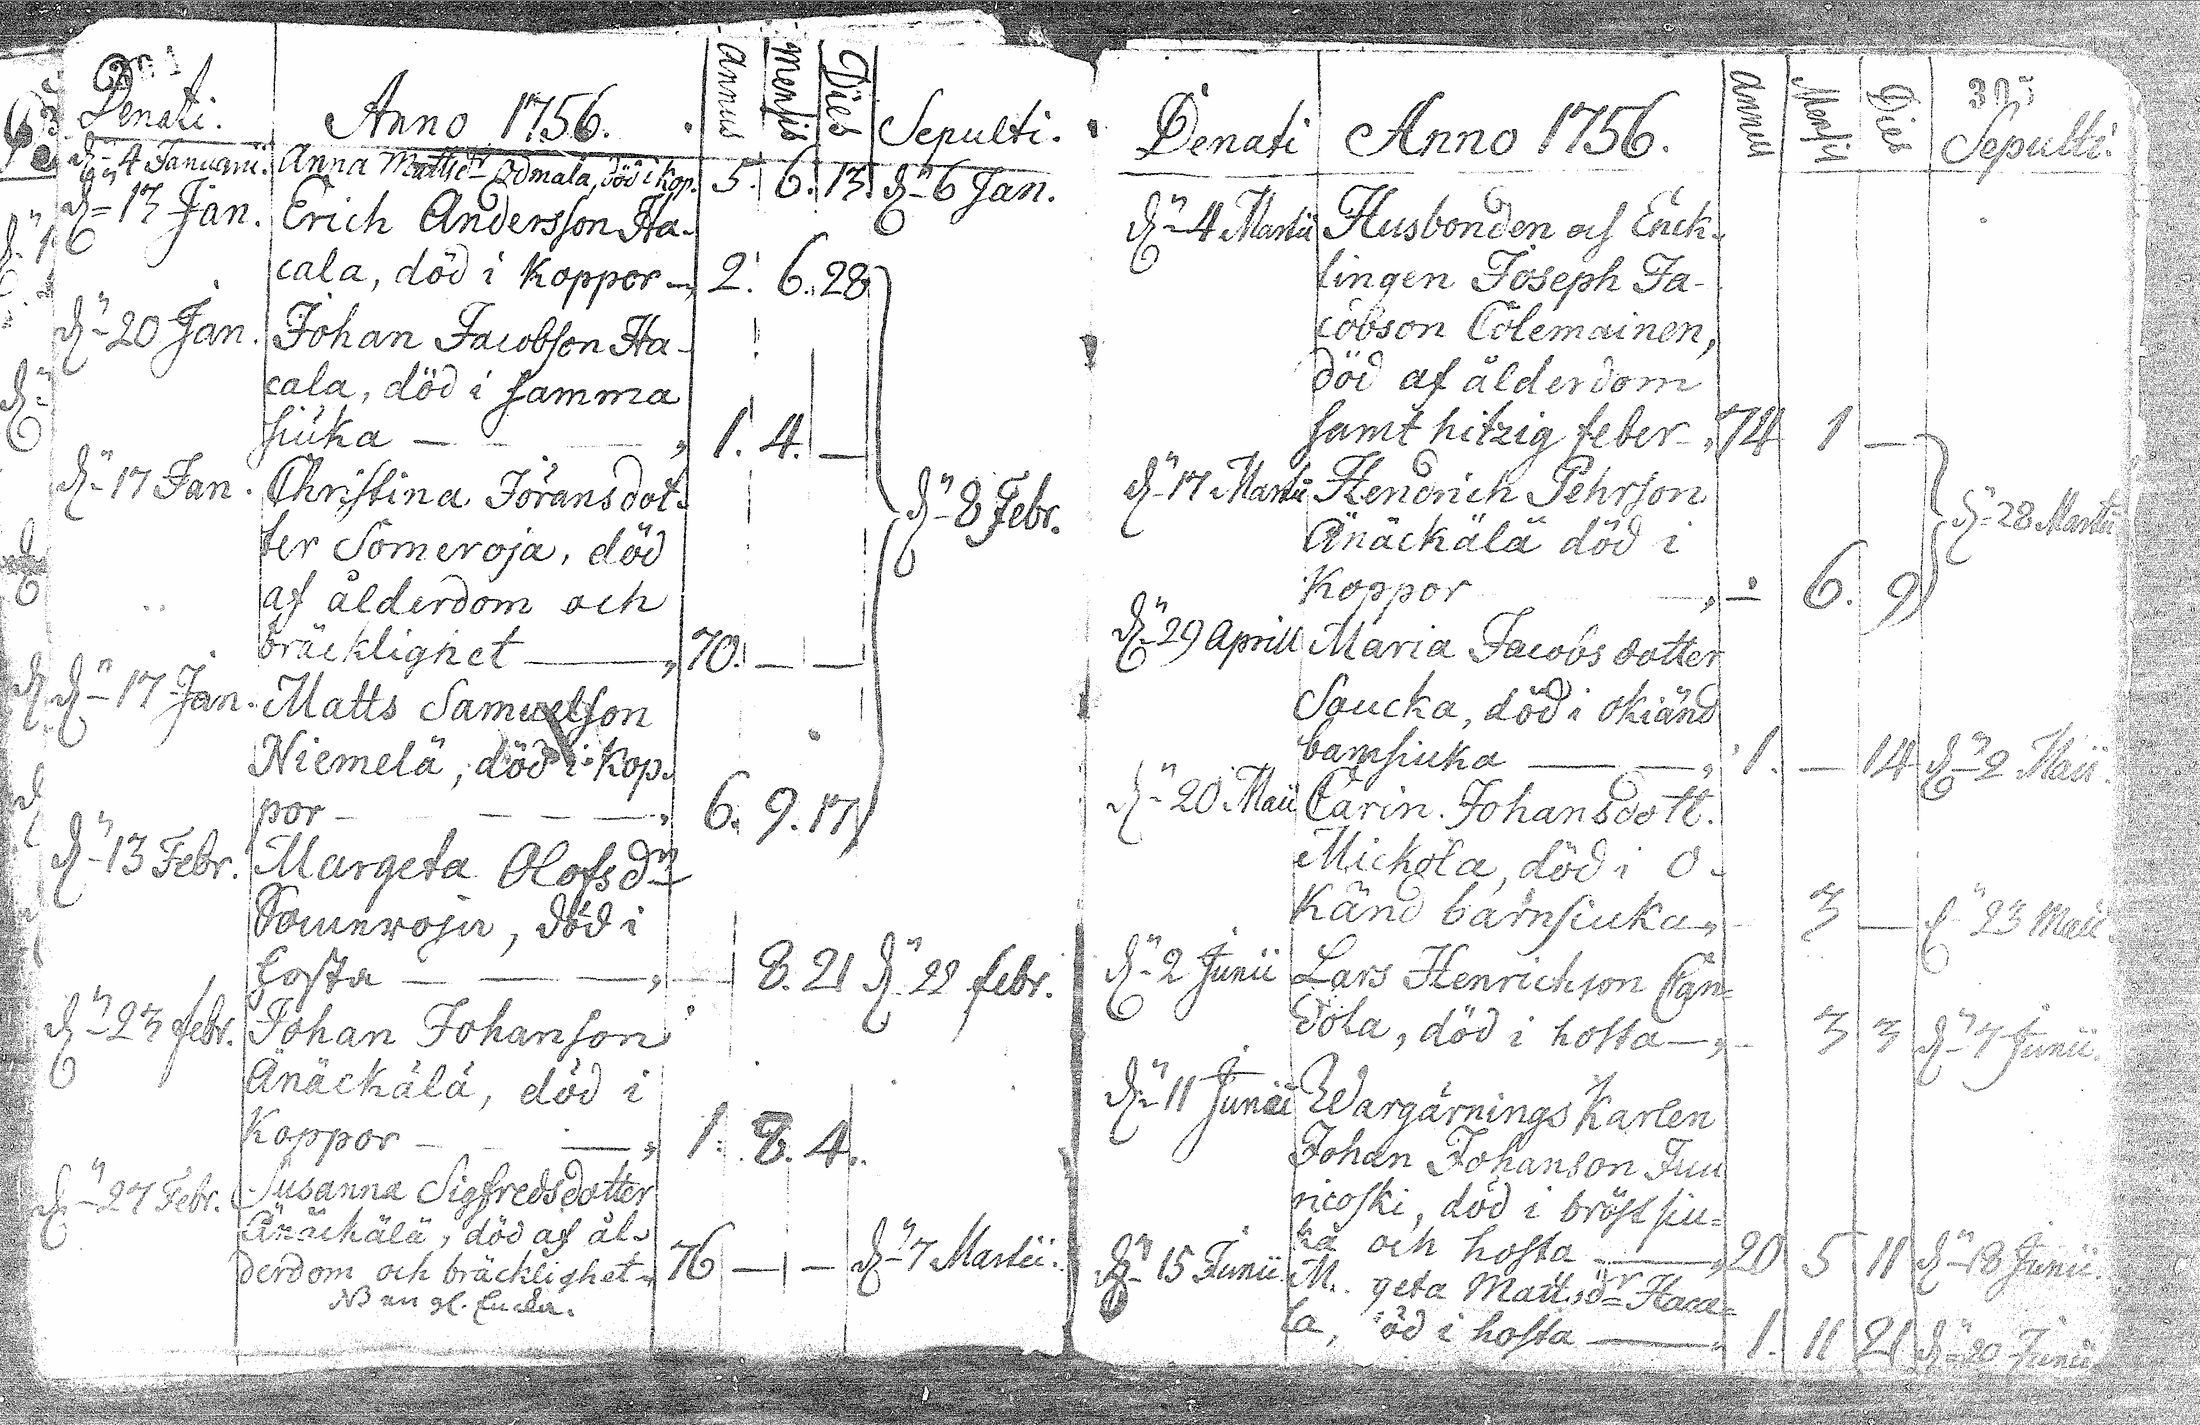 Denati. Anno 1756. Annus Mensis Dies Sepulti.
dn 4 Januarii. Anna Mattsdr Idmala, död i kop. 5. 6. 13. dn 6 Jan.
dn 13 Jan. Erich Andersson Ha-
cala, död i Koppor — 2. 6. 28
dn 20 Jan. Johan Jacobson Ha-
cala, död i samma
siuka — 1. 4. —
dn 17 Jan. Christina Jöransdot-
ter Someroja, död dn 8 Febr.
af ålderdom och
bräcklighet — 70. — —
dn 17 Jan. Matts Samuelson
Niemelä, död i Kop-
por — 6. 9. 17
dn 13 Febr. Margeta Olofsdr
Someroja, död i
hosta — — 8. 21 dn 22 febr.
dn 23 febr. Johan Johanson
Änäckälä, död i
Koppor — 1. 8. 4.
dn 27 Febr. Susanna Sigfredsdotter
Änäckälä, död af ål-
derdom och bräcklighet 76 — — dn 7 Martii.
NB en gl. Encka.
305
Denati Anno 1756. Annus Mensis Dies Sepulti.
dn 4 Martii Husbonden och Enck-
lingen Joseph Ja-
cobson Colemainen,
död af ålderdom
samt hitzig feber 74 1 —
dn 17 Martii Hendrich Pehrson
Änäckälä död i dn 28 Martii
Koppor — 6. 9
dn 29 Aprill Maria Jacobs dotter
Saucka, död i okiänd
barnsiuka — 1. — 14 dn 2 Maii.
dn 20 Maii Carin Johansdott.
Mickola, död i o-
känd barnsiuka 3 — dn 23 Maii.
dn 2 Junii Lars Henrichson Can-
dola, död i hosta — 3 3 dn 7 Junii.
dn 11 Junii Wargärnings Karlen
Johan Johanson Juu
ricoski, död i bröst siu-
ka och hosta — 20 5 11 dn 18 Junii.
dn 15 Junii M..geta Mattsdr Haca-
la, död i hosta — 1. 11 21 dn 20 Junii